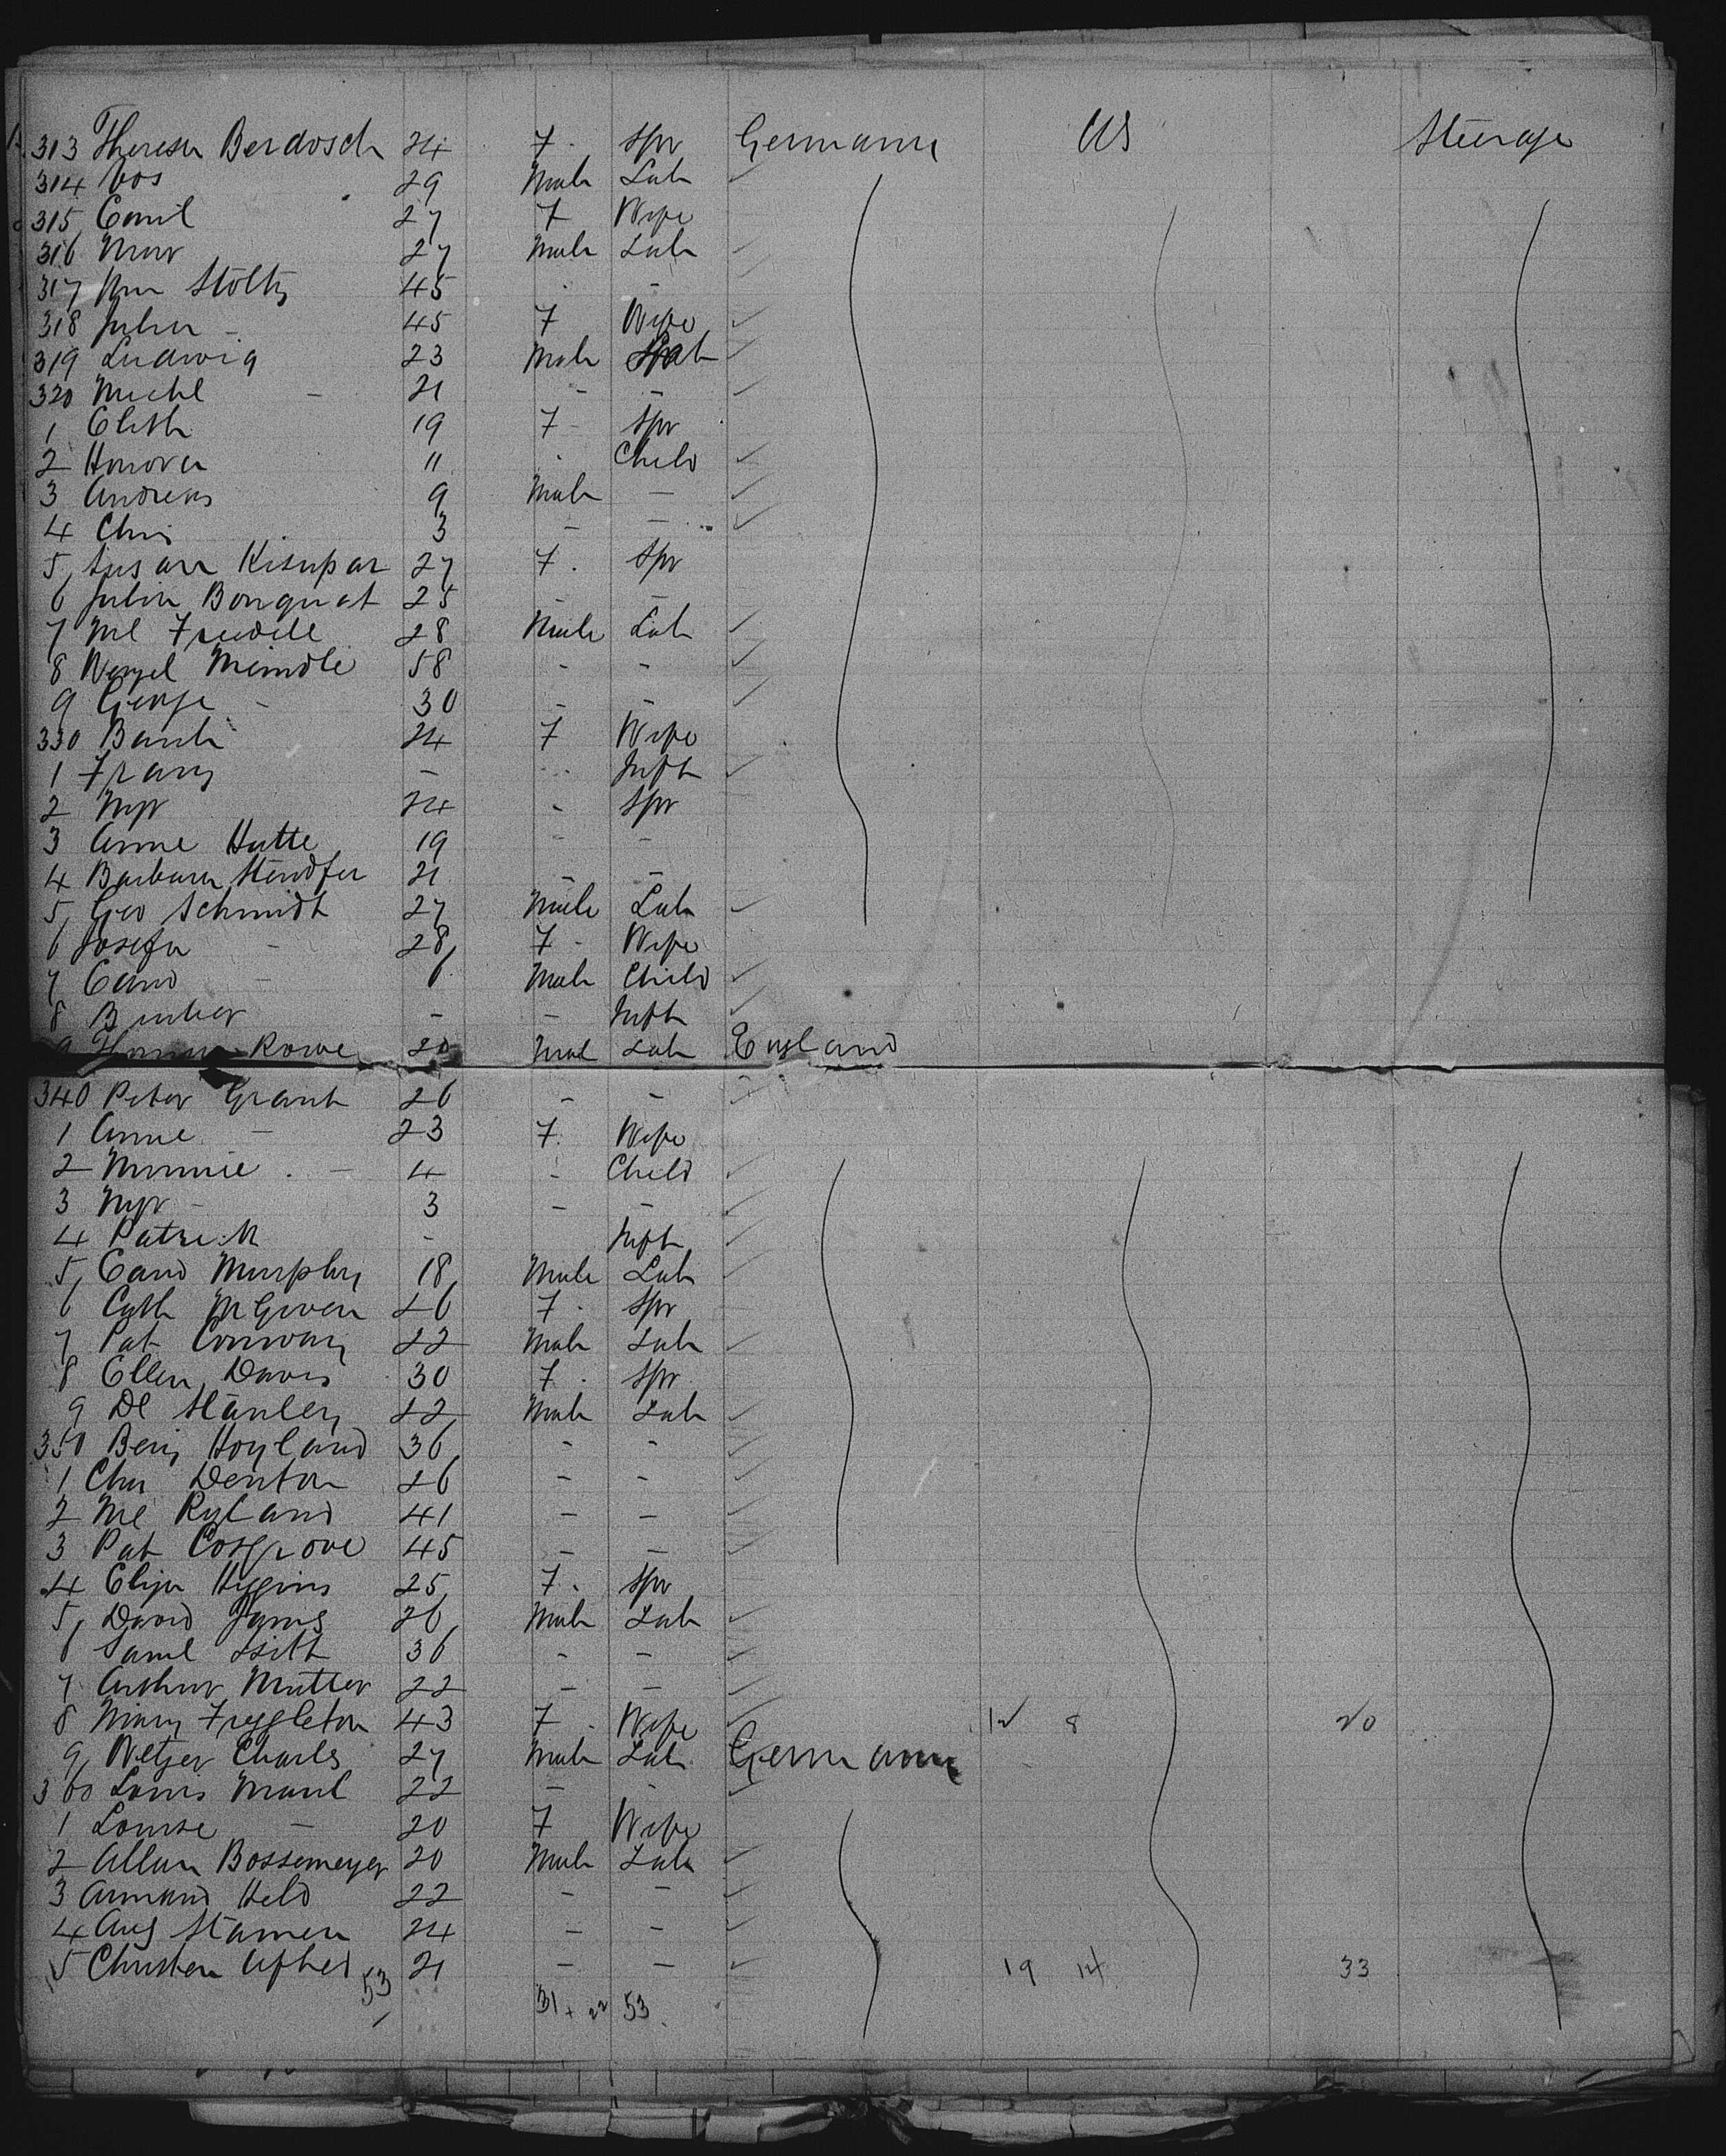 313 Theresa Berdosch 24 7 Spr Germany US Steerage
314 Jos 29 Male Lab
315 Emil 27 7 Wife
316 27 Male Lab
317 Stoltz 45 - -
318 Julia - 45 7 Wife
319 Ludwig 23 Male Lab
320 Michl - 21 - -
1 Elisth 19 7 Spr
2 11 - Child
3 Andreas 9 Male -
4 Chris 3 - -
5 Susan 27 7 Spr
6 Julia Bonquat 25 - -
7 Ml 28 Male Lab
8 Wenzel Meindle 58 - -
9 George - 30 - -
330 Barb 24 7 Wife
1 Franz - - Inft
2 24 - Spr
3 Annie Hutte 19 - -
4 Barbara 21 - -
5 Geo Schmidt 27 Male Lab
6 Josefa - 28 7 Wife
7 - 6 Male Child
8 - - Inft
9 Rowe 20 Male Lab England
340 Peter Grant 26 - -
1 Annie - 23 7 Wife
2 Minnie - 4 - Child
3 - 3 - -
4 Patrick - Inft
5 Murphy 18 Male Lab
6 Cath McGiven 26 7 Spr
7 Pat Conway 22 Male Lab
8 Ellen Davis 30 7 Spr
9 Dl Stanley 22 Male Lab
350 Benj Hoyland 36 - -
1 Chas Denton 26 - -
2 Ml Ryland 41 - -
3 Pat Cosgrove 45 - -
4 Eliza Higgins 25 7 Spr
5 David James 26 Male Lab
6 Saml 36 - -
7 Arthur Mutter 22 - -
8 Mary Freggleton 43 7 Wife 12 8 20
9 Wetzer Charles 27 Male Lab Germany
360 Louis Maul 22 - -
1 Louise - 20 7 Wife
2 Allan Bossemeyer 20 Male Lab
3 Armand Held 22 - -
4 Aug Stamen 24 - -
5 Christen 21 - - 19 14 33
53 31 + 22 53